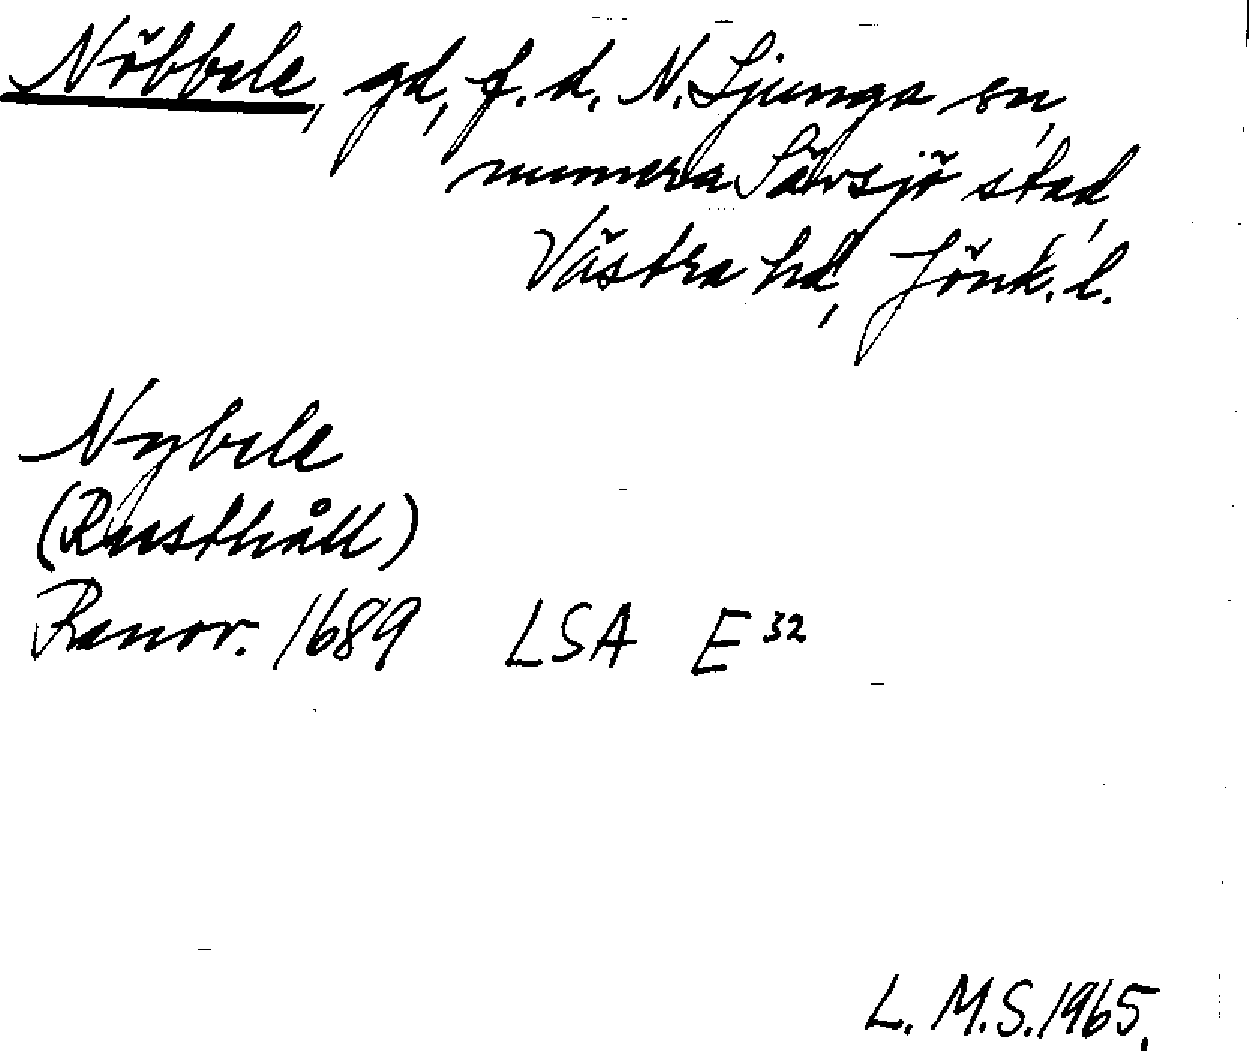 Nöbbele, gd, f. d. N. Ljunga sn,
numera Sävsjö stad,
Västra hd, Jönk. l.
Nybele
(Rusthåll)
Renov. 1689 LSA E 32
L. M. S. 1965.